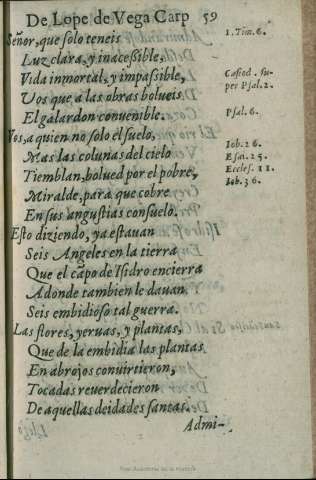 De Lope de Vega Carp 59
Señor, que solo teneis
Luz clara, y inacessible,
Vida inmortal, y impassible,
Uos que a las obras bolueis
El galardon conuenible.
Vos, a quien no solo el suelo,
Mas las colunas del cielo
Tiemblan, bolued por el pobre,
Miralde, para que cobre
En sus angustias consuelo.
Esto diziendo, ya estauan
Seis Angeles en la tierra
Que el cãpo de Isidro encierra
Adonde tambien le dauan
Seis embidiosos tal guerra.
Las flores, yeruas, y plantas,
Que de la embidia las plantas
En abrojos conuirtieron,
Tocadas reuerdecieron
De aquellas deidades santas.
Admi-
1. Tim. 6.
Casiod. su-
per Psal. 2.
Psal. 6.
Iob. 26.
Esai. 25.
Eccles. 11.
Iob. 36.